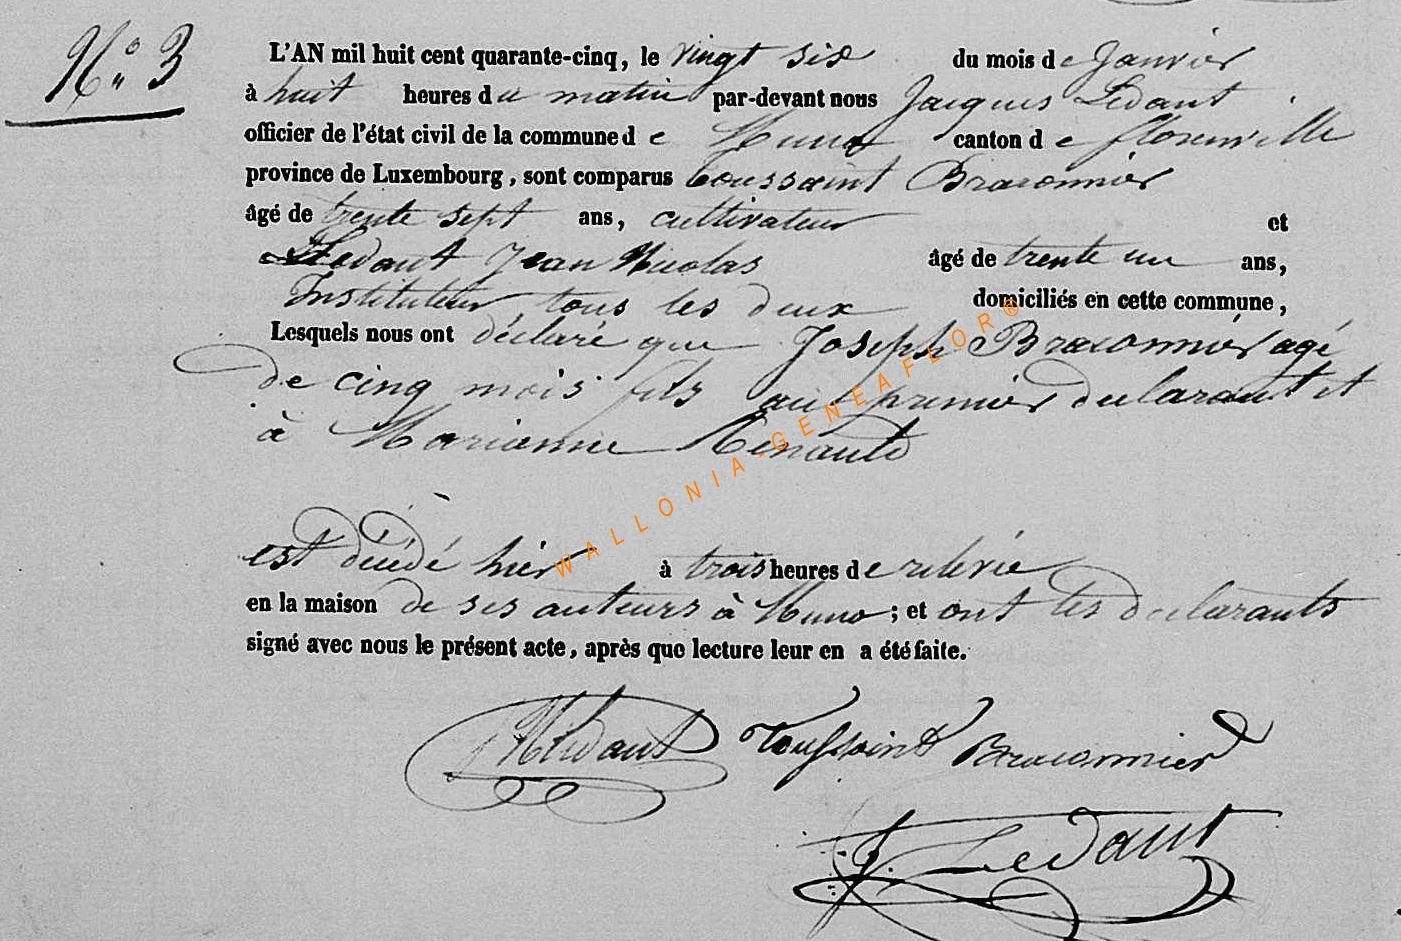 N° 3
L'AN mil huit cent quarante-cinq, le vingt six du mois de Janvier
à huit heures du matin par-devant nous Jacques Ledant
officier de l'état civil de la commune de Muno canton de florenville
province de Luxembourg, sont comparus toussaint Braconnier
âgé de trente sept ans, cultivateur et
Ledant Jean Nicolas âgé de trente un ans,
Instituteur, tous les deux domiciliés en cette commune,
Lesquels nous ont déclaré que Joseph Braconnier agé
de cinq mois fils au premier declarant et
à Marianne Renauld
est décédé hier à trois heures de relevée
en la maison de ses auteurs à Muno; et ont les declarants
signé avec nous le présent acte, après que lecture leur en a été faite.
WALLONIA-GENEAFLOR®
JNLedant Toussaint Braconnier
J. Ledant